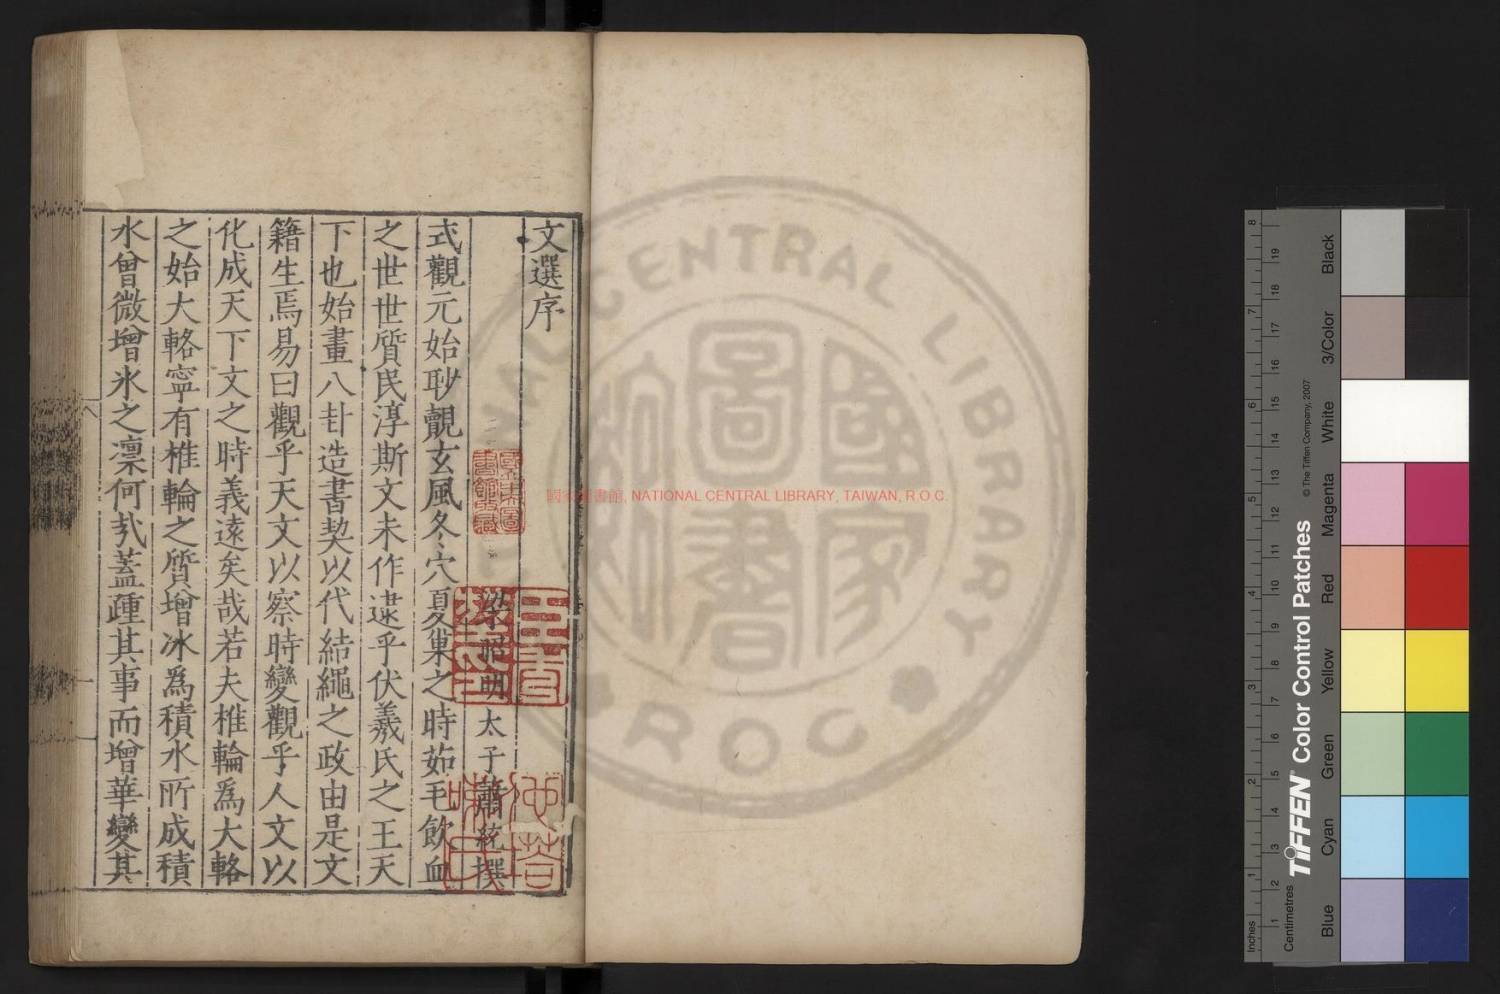 文選序
梁昭明太子蕭統撰
式觀元始眇覿玄風冬穴夏巢之時茹毛飲血
之世世質民淳斯文未作逮乎伏羲氏之王天
下也始畫八卦造書契以代結繩之政由是文
籍生焉易曰觀乎天文以察時變觀乎人文以
化成天下文之時義遠矣哉若夫椎輪爲大輅
之始大輅寧有椎輪之質增冰爲積水所成積
水曾微增氷之凛何㢤蓋踵其事而增華變其
國家圖書館
NATIONAL CENTRAL LIBRARY
R O C
國家圖書館, NATIONAL CENTRAL LIBRARY, TAIWAN, R.O.C.
Inches
1 2 3 4 5 6 7 8
Centimetres
1 2 3 4 5 6 7 8 9 10 11 12 13 14 15 16 17 18 19
TIFFEN Color Control Patches
© The Tiffen Company, 2007
Blue
Cyan
Green
Yellow
Red
Magenta
White
3/Color
Black